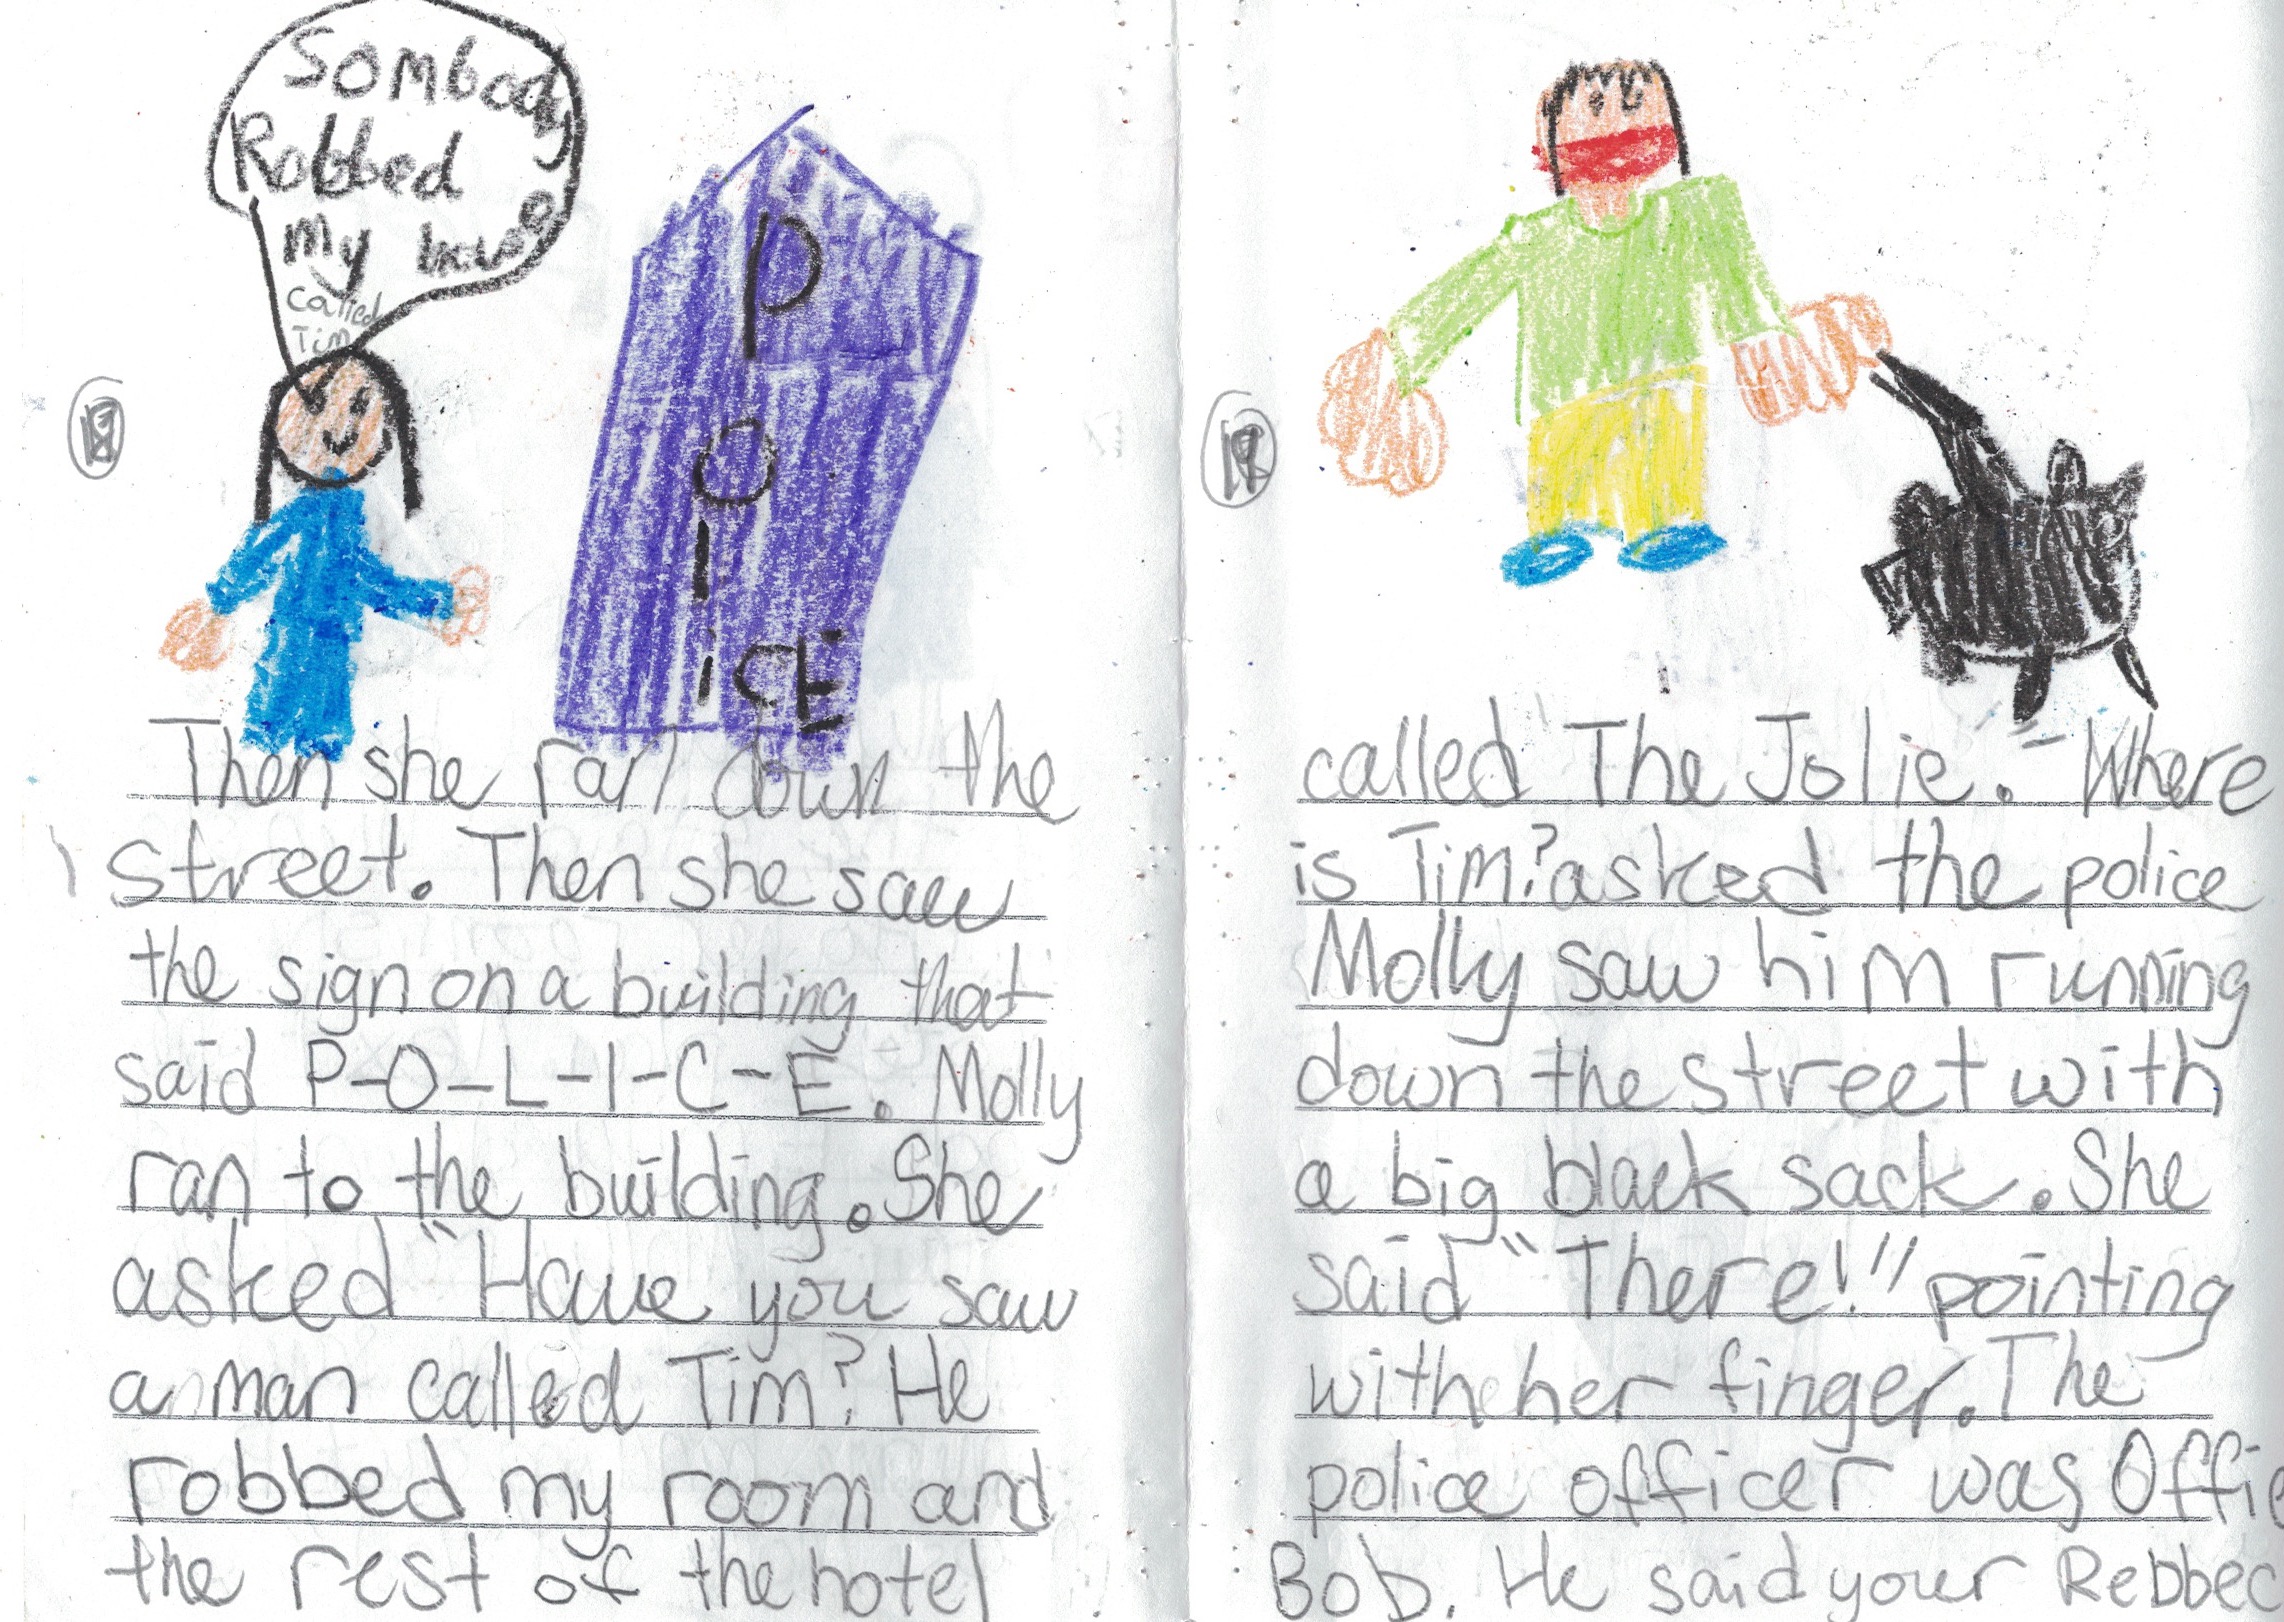 Sombody
Robbed
My house
called
Tim
P
O
l
iCE
Then she ran down the
street. Then she saw
the sign on a building that
said P-O-L-I-C-E. Molly
ran to the building. She
asked "Have you saw
a man called Tim? He
robbed my room and
the rest of the hotel
called The Jolie." Where
is Tim? asked the police
Molly saw him running
down the street with
a big black sack. She
said "There!" pointing
with her finger. The
police officer was Offic
Bob. He said your Rebbec